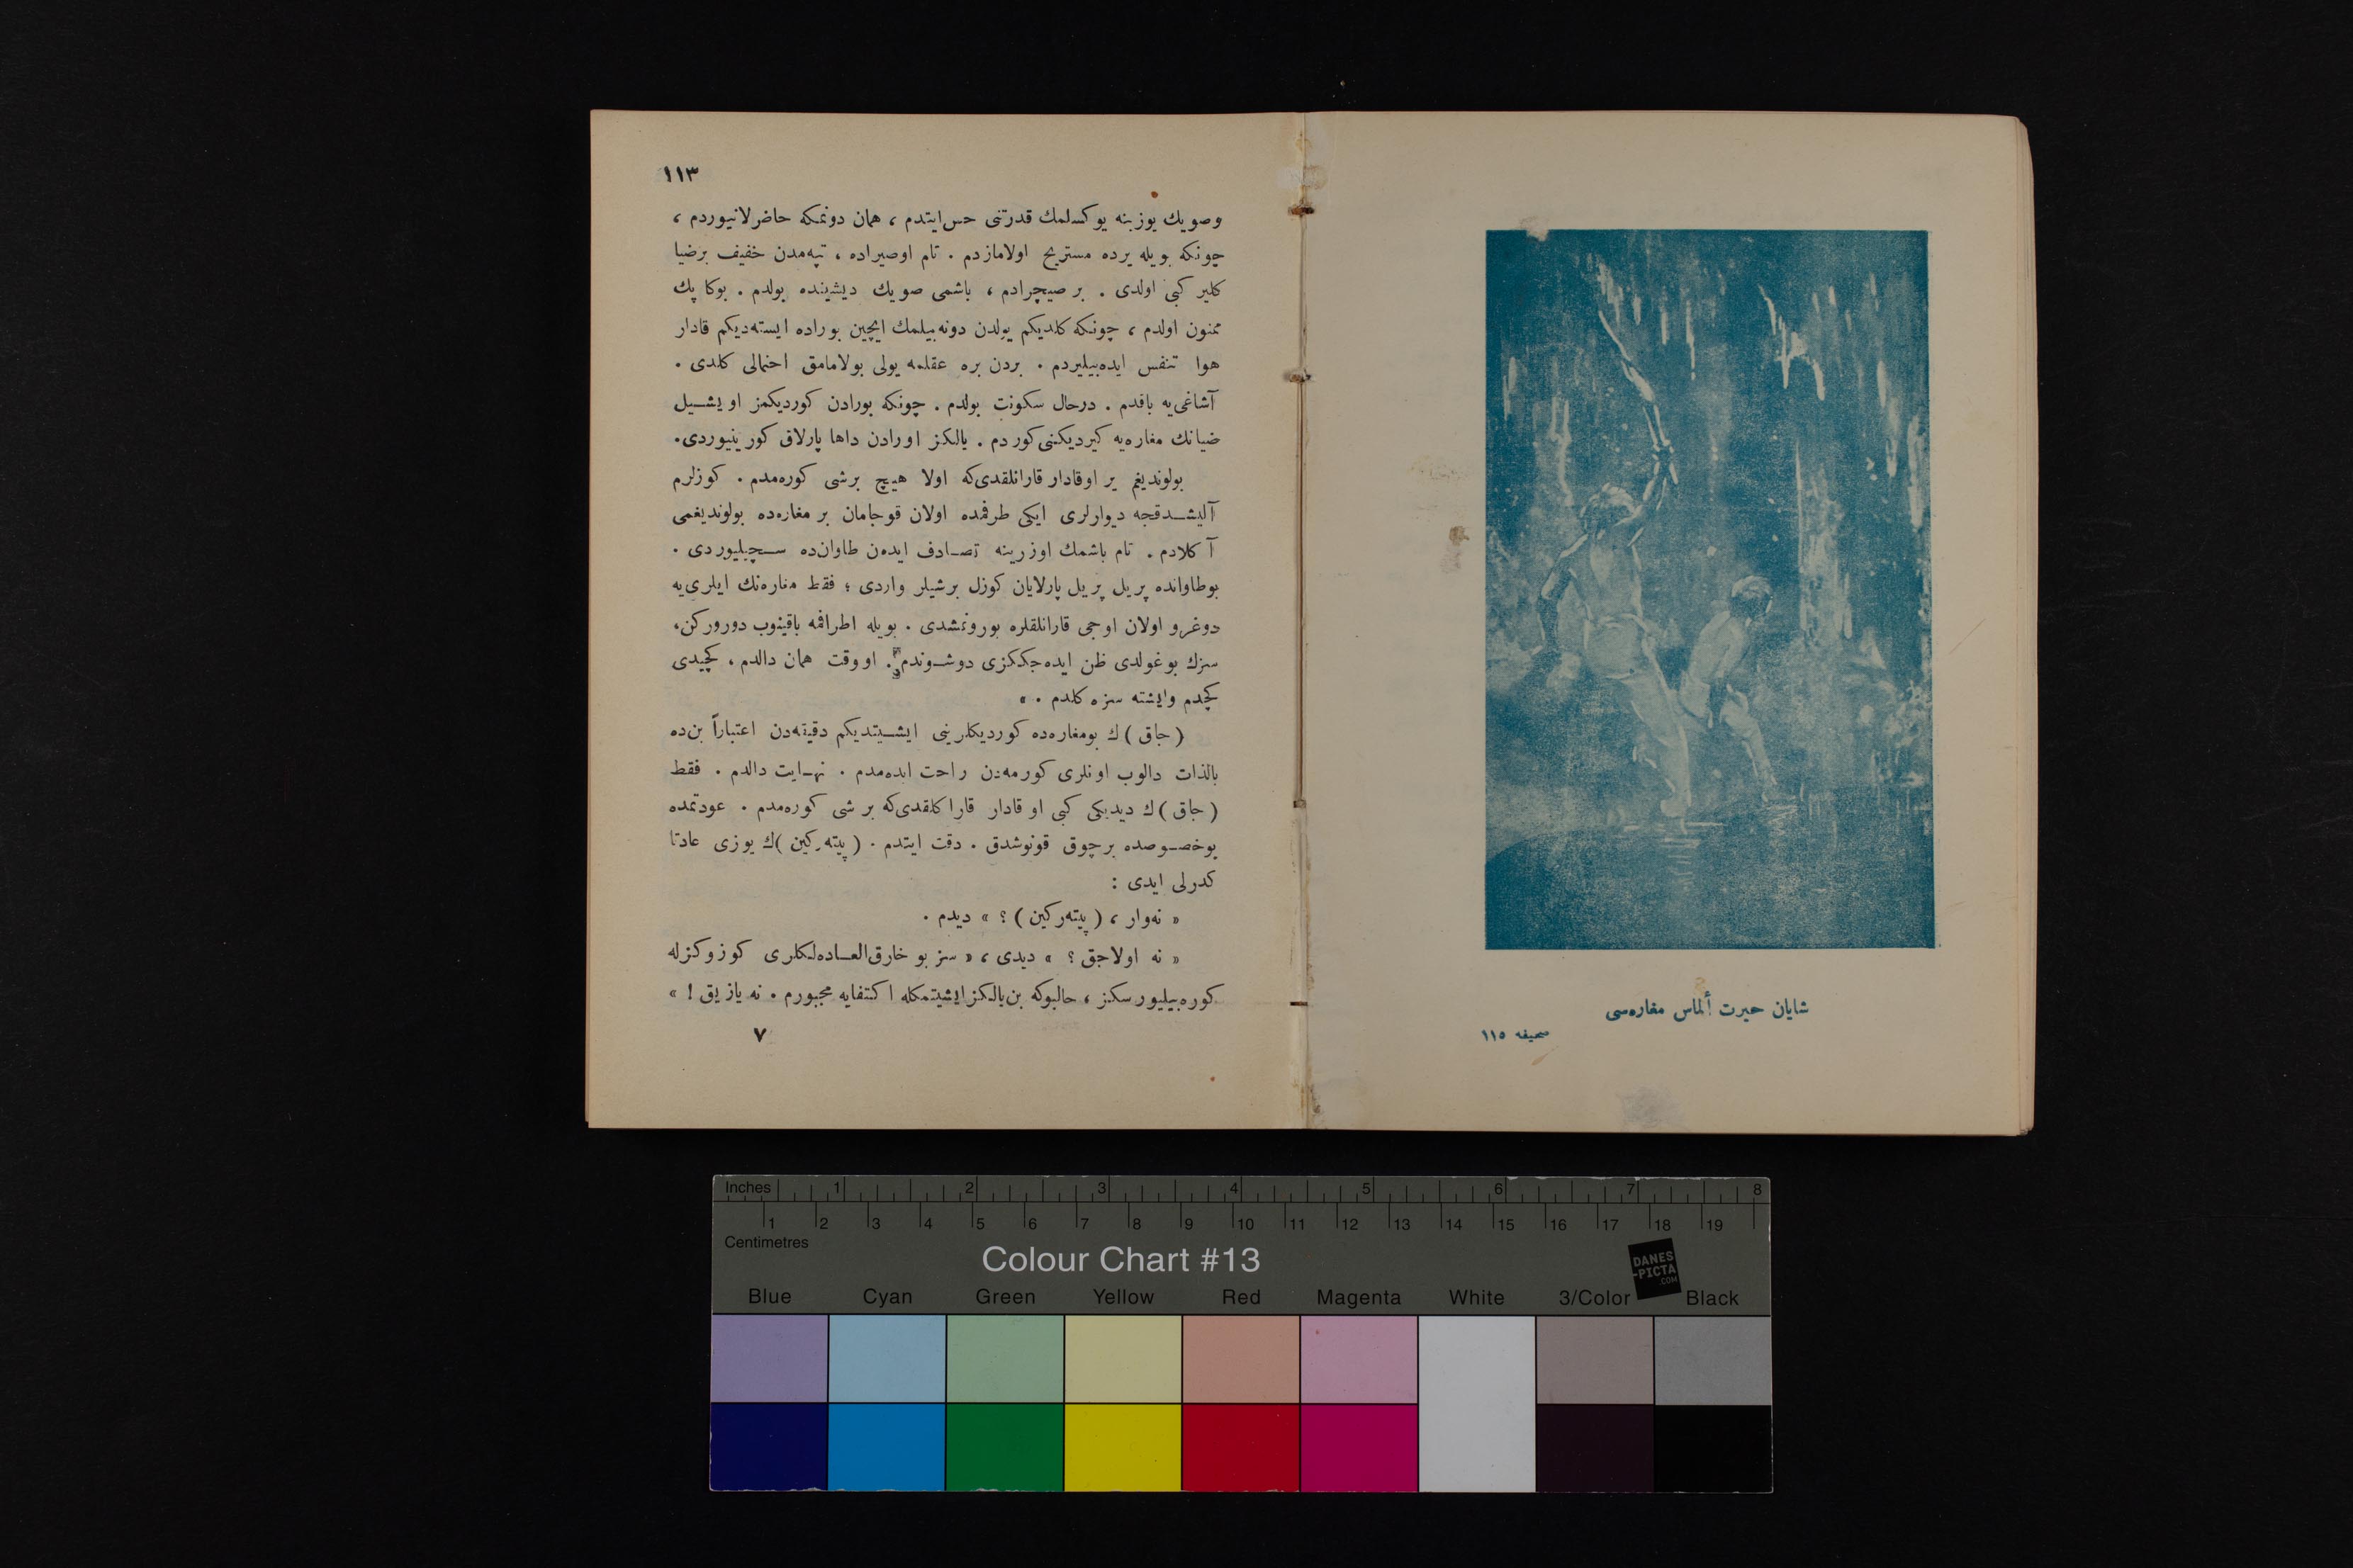 ١١٣
وصويك يوزينه يوكسلمك قدرتنى حس ايتدم ، همان دونمكه حاضرلانيوردم ،
چونكه بويله يرده مستريح اولامازدم . تام اوصيراده ، تپه‌مدن خفيف برضيا
كلير كبى اولدى . بر صيچرادم ، باشمى صويك ديشينده بولدم . بوكا پك
ممنون اولدم ، چونكه كلديكم يولدن دونه‌بيلمك ايچين بوراده ايسته‌ديكم قادار
هوا تنفس ايده‌بيليردم . بردن بره عقلمه يولى بولامامق احتمالى كلدى .
آشاغى‌يه باقدم . درحال سكونت بولدم . چونكه بورادن كورديكمز او يشـيل
ضيانك مغاره‌يه كيرديكنى كوردم . يالكز اورادن داها پارلاق كورينيوردى.
بولونديغم ير اوقادار قارانلقدى‌كه اولا هيچ برشى كوره‌مدم . كوزلرم
آليشـدقجه ديوارلرى ايكى طرفمده اولان قوجامان بر مغاره‌ده بولونديغمى
آ كلادم . تام باشمك اوزرينه تصـادف ايدن طاوان‌ده سـچيليوردى .
بوطاوانده پريل پريل پارلايان كوزل برشيلر واردى ؛ فقط مغاره‌نك ايلرى‌يه
دوغرو اولان اوجى قارانلقلره بورونمشدى . بويله اطرافمه باقينوب دورركن،
سزك بوغولدى ظن ايده‌جككزى دوشـوندم . اووقت همان دالدم ، كچيدى
كچدم وايشته سزه كلدم . »
( جاق )ك بومغاره‌ده كورديكلرينى ايشـيتديكم دقيقه‌دن اعتباراً بن‌ده
بالذات دالوب اونلرى كورمه‌دن راحت ايده‌مدم . نهـايت دالدم . فقط
( جاق )ك ديديكى كبى او قادار قاراكلقدى‌كه بر شى كوره‌مدم . عودتمده
بوخصـوصده برچوق قونوشدق . دقت ايتدم . ( پيته‌ركين )ك يوزى عادتا
كدرلى ايدى :
« نه‌وار ، ( پيته‌ركين ) ؟ » ديدم .
« نه اولاجق ؟ » ديدى ، « سز بو خارق‌العـاده‌لكلرى كوزوكزله
كوره‌بيليورسكز ، حالبوكه بن‌يالكز ايشيتمكله اكتفايه مجبورم . نه يازيق ! »
٧
شايان حيرت ألماس مغاره‌سى
صحيفه ١١٥
Inches 1 2 3 4 5 6 7 8
1 2 3 4 5 6 7 8 9 10 11 12 13 14 15 16 17 18 19
Centimetres
Colour Chart #13
DANES
-PICTA
.COM
Blue Cyan Green Yellow Red Magenta White 3/Color Black